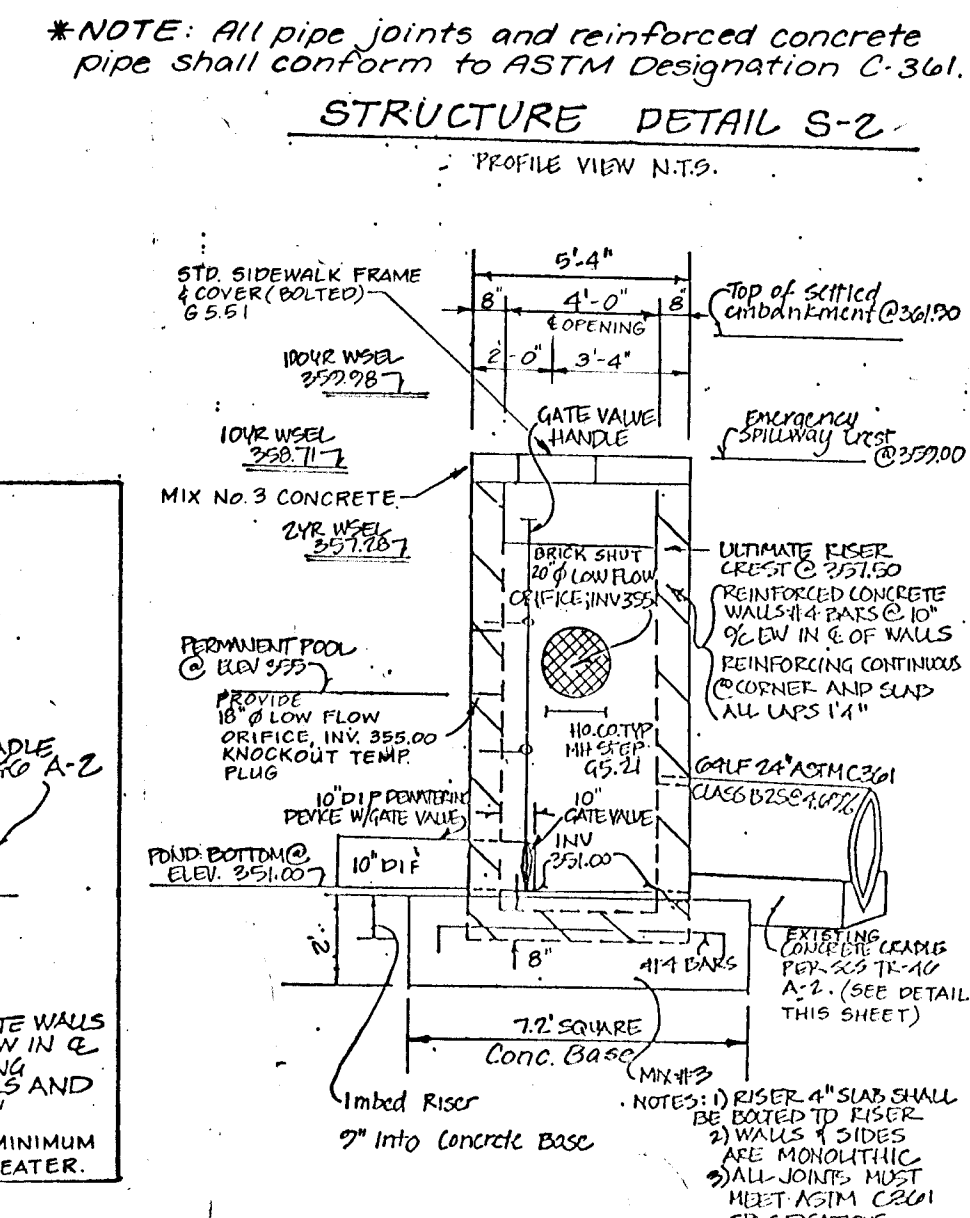 *NOTE: All pipe joints and reinforced concrete
pipe shall conform to ASTM Designation C-361.
STRUCTURE DETAIL S-2
PROFILE VIEW N.T.S.
5'-4"
STD. SIDEWALK FRAME
& COVER (BOLTED)
G 5.51
8"
4'-0"
8"
℄ OPENING
2'-0"
3'-4"
Top of settled
embankment @ 361.90
100YR WSEL
359.98
GATE VALVE
HANDLE
Emergency
Spillway Crest
@ 359.00
10YR WSEL
358.71
MIX No. 3 CONCRETE
2YR WSEL
357.28
BRICK SHUT
20"φ LOW FLOW
ORIFICE, INV 355
ULTIMATE RISER
CREST @ 357.50
REINFORCED CONCRETE
WALLS #4 BARS @ 10"
O/C EW IN ℄ OF WALLS
REINFORCING CONTINUOUS
@ CORNER AND SLAB
ALL LAPS 1'4"
PERMANENT POOL
@ ELEV 355
PROVIDE
18"φ LOW FLOW
ORIFICE, INV. 355.00
KNOCKOUT TEMP.
PLUG
HO.CO.TYP
MH STEP
G5.21
64LF 24" ASTM C361
CLASS B25 @
10" DIP DEWATERING
DEVICE W/GATE VALVE
10"
GATE VALVE
INV
351.00
10" DIP
POND BOTTOM @
ELEV. 351.00
2'
8"
#4 BARS
EXISTING
CONCRETE CRADLE
PER SCS TR-46
A-2. (SEE DETAIL
THIS SHEET)
7.2' SQUARE
Conc. Base
MIX #3
Imbed Riser
9" Into Concrete Base
NOTES: 1) RISER 4" SLAB SHALL
BE BOLTED TO RISER
2) WALLS & SIDES
ARE MONOLITHIC
3) ALL JOINTS MUST
MEET ASTM C361
A-2
TE WALLS
W IN ℄
NG
LS AND
MINIMUM
EATER.